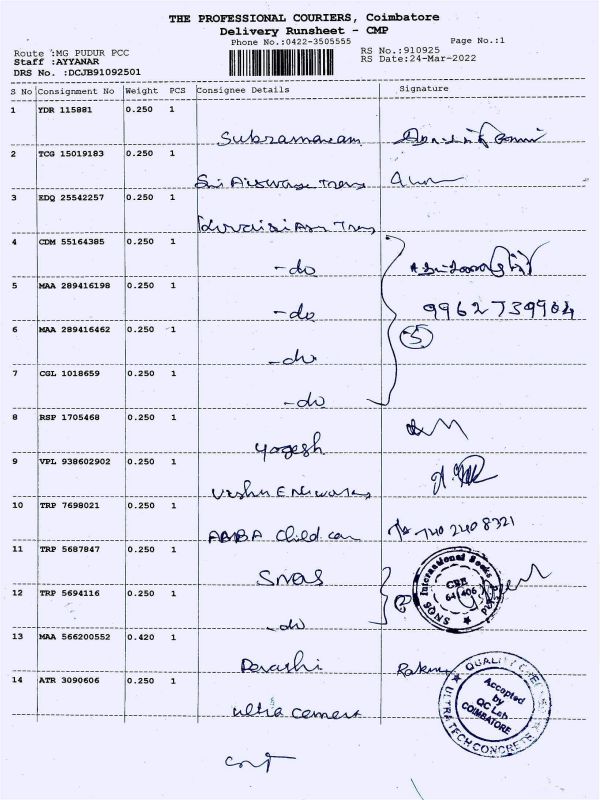 THE PROFESSIONAL COURIERS, Coimbatore
Delivery Runsheet - CMP
Phone No.:0422-3505555
Page No.:1
Route :MG PUDUR PCC
RS No.:910925
Staff :AYYANAR
RS Date:24-Mar-2022
DRS No. :DCJB91092501
S No Consignment No Weight PCS Consignee Details Signature
1 YDR 115881 0.250 1
Subramaniam
2 TCG 15019183 0.250 1
Sri Airways Trans
3 EDQ 25542257 0.250 1
4 CDM 55164385 0.250 1
-do
5 MAA 289416198 0.250 1
-do 9962739904
6 MAA 289416462 0.250 1
-do 5
7 CGL 1018659 0.250 1
-do
8 RSP 1705468 0.250 1
Yogesh
9 VPL 938602902 0.250 1
10 TRP 7698021 0.250 1
Child 740 240 8321
11 TRP 5687847 0.250 1
SNBS
12 TRP 5694116 0.250 1
-do
SNBS International Books
CBE
641406
13 MAA 566200552 0.420 1
Devashi
14 ATR 3090606 0.250 1
ultra cement
QUALITY
Accepted
by
QC Lab
COIMBATORE
ULTRA TECH CONCRETE